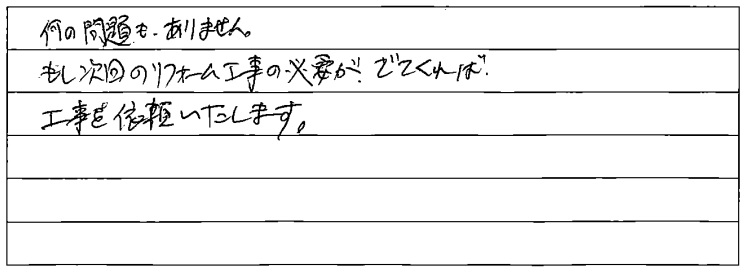 何の問題も、ありません。
もし次回のリフォーム工事の必要が、でてくれば、
工事を依頼いたします。